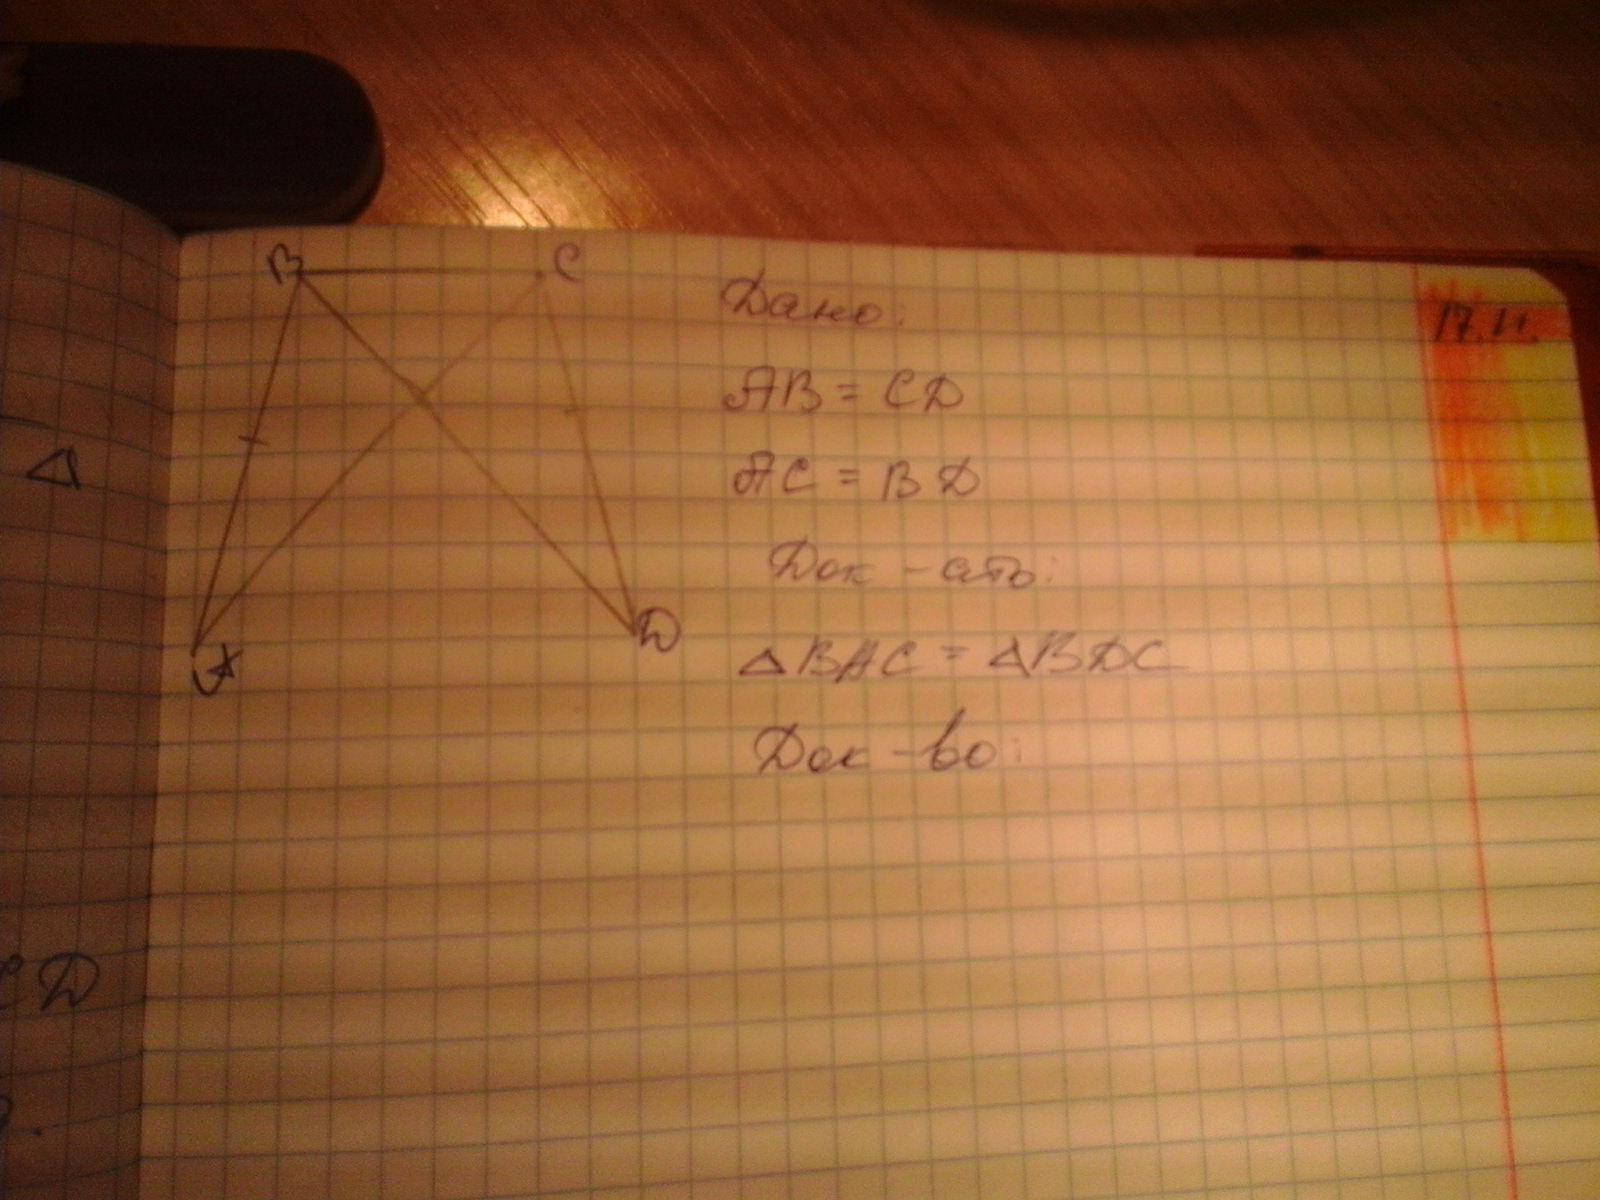 B C
Дано:
17.11.
AB = CD
AC = BD
Док-ать:
A D
△BAC = △BDC
Док-во:
△
CD